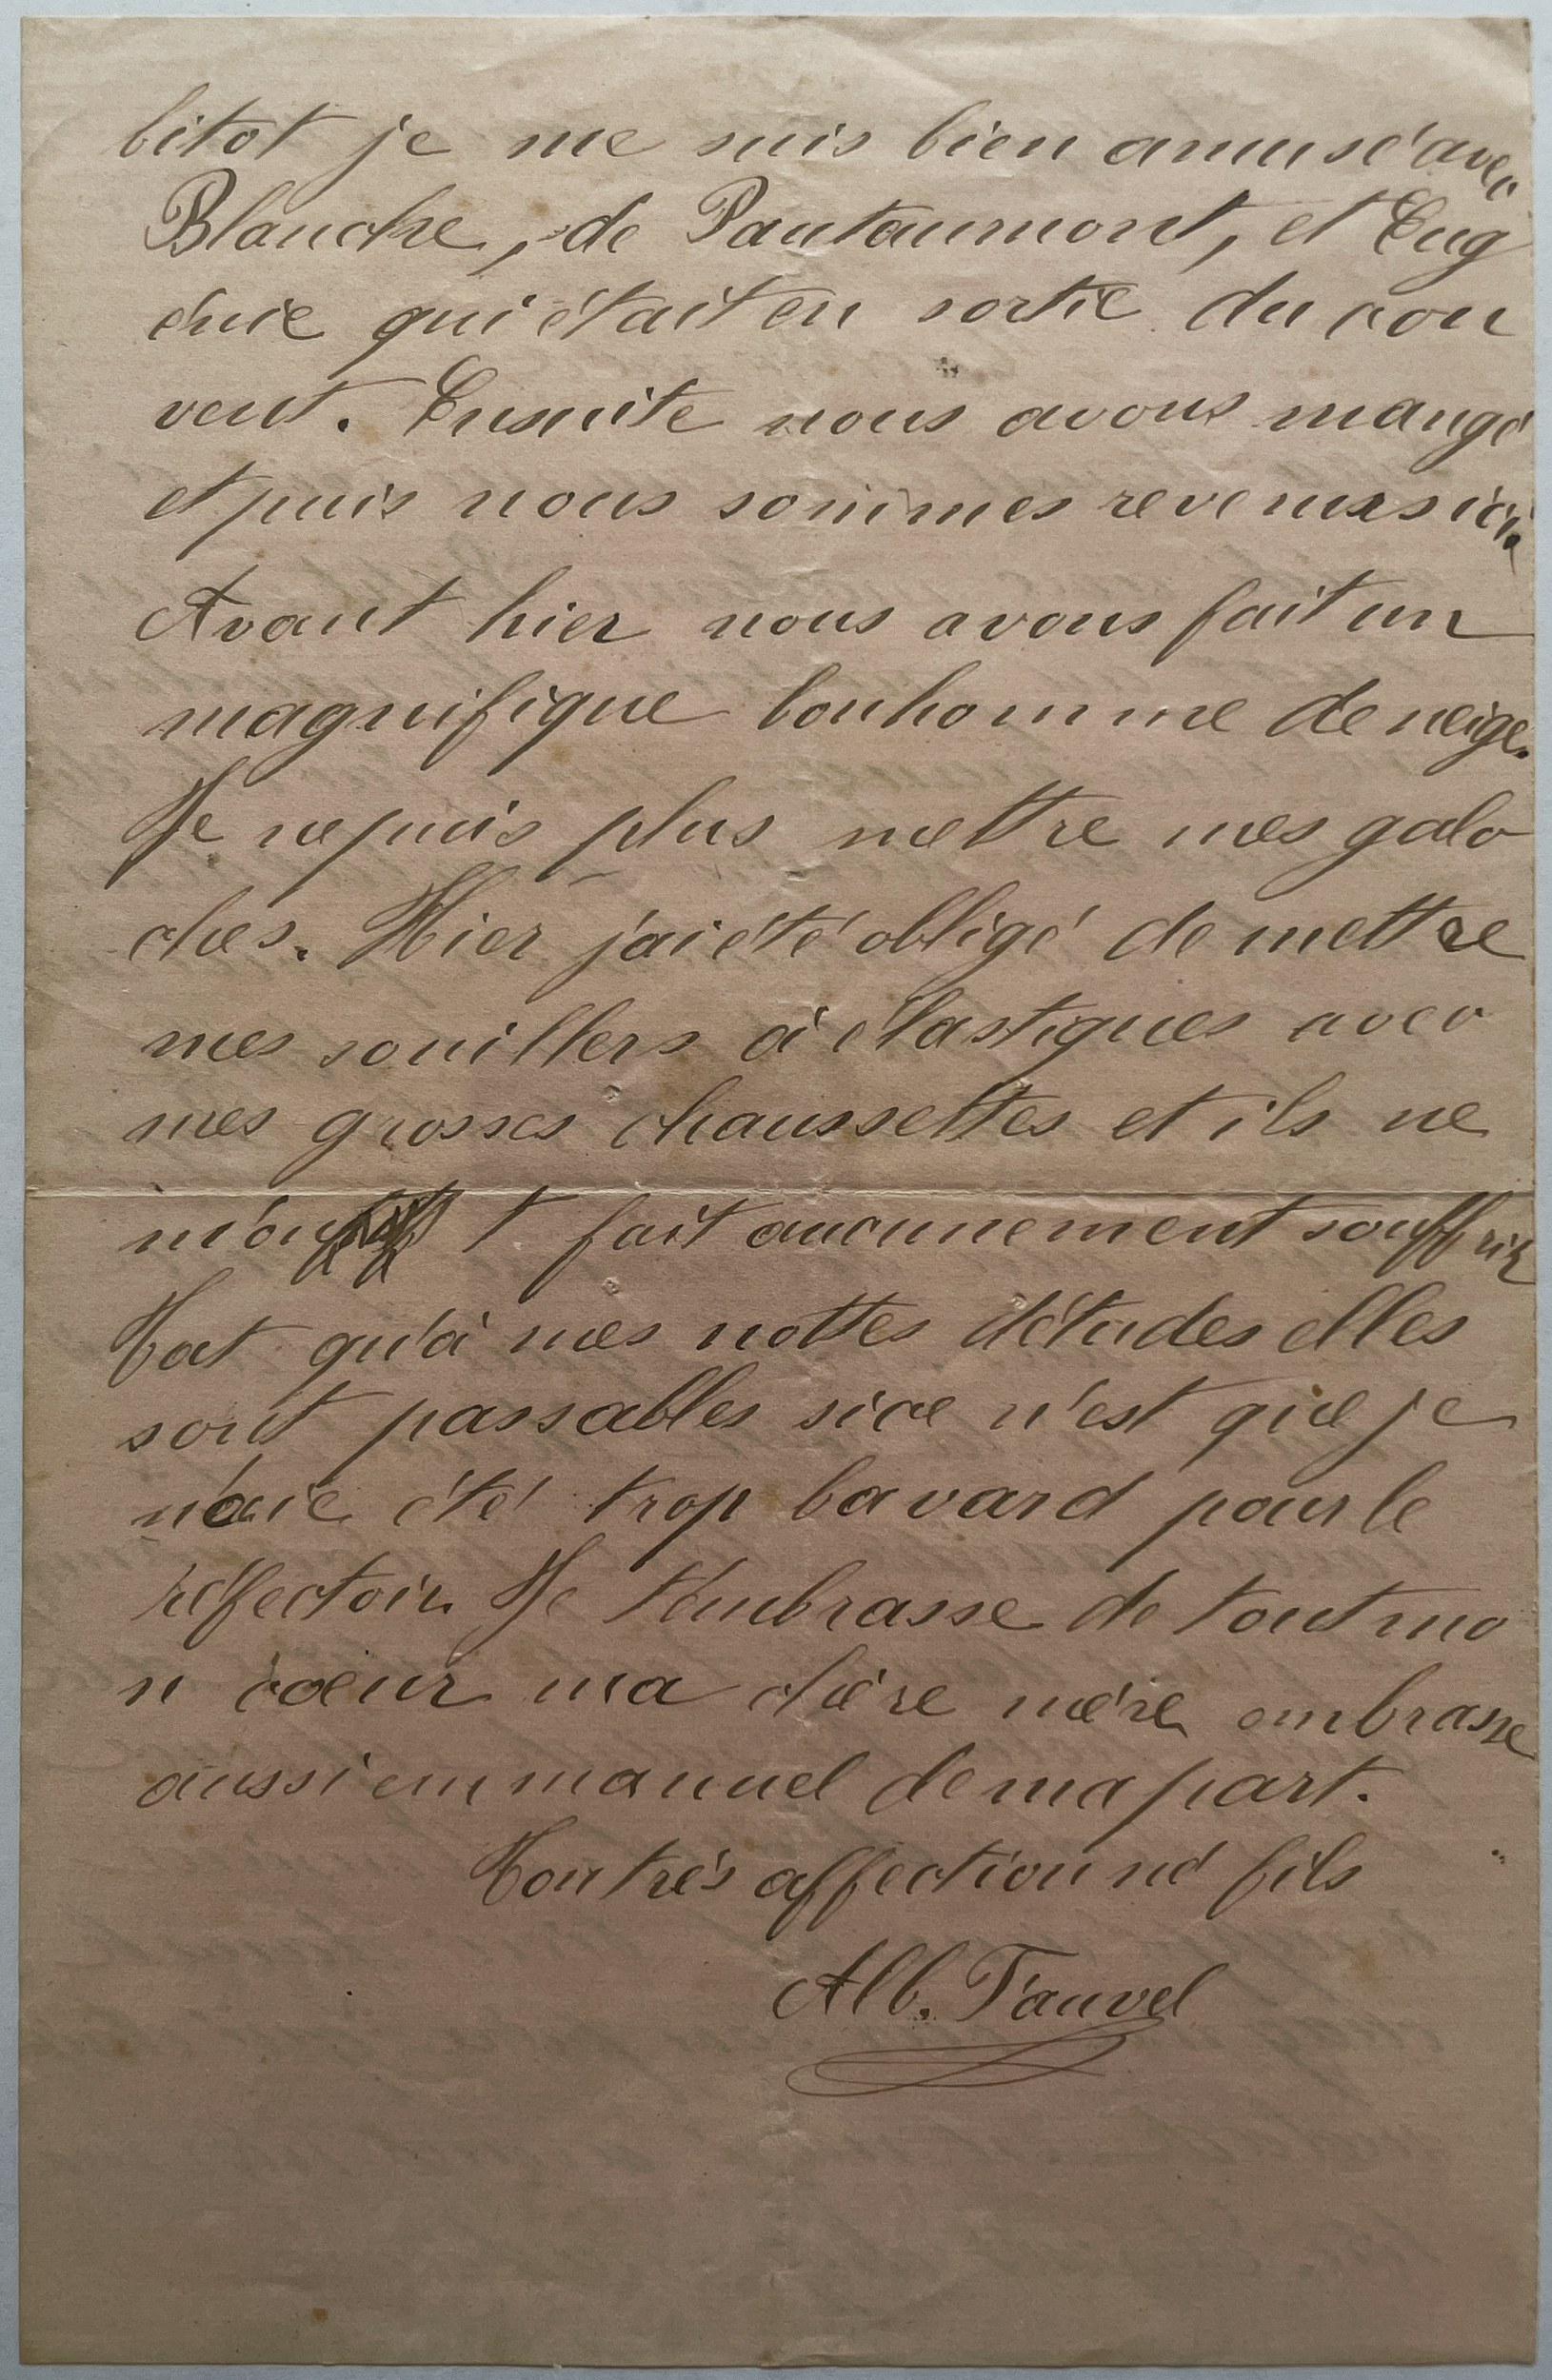 bitot je me suis bien amusé avec
Blanche, de Pautaumont, et Eug
énie qui était en sortie du cou
vent. Ensuite nous avons mangé
et puis nous sommes revenus ici.
Avant hier nous avons fait un
magnifique bonhomme de neige.
Je ne puis plus mettre mes galo
ches. Hier j'ai été obligé de mettre
mes souillers à élastiques avec
mes grosses chaussettes et ils ne
m'ont fait aucunement souffrir
Tat qu'à mes nottes d'études elles
sont passables si ce n'est que je
n'aie été trop bavard pour le
réffectoir. Je t'embrasse de tout mo
n cœur ma chère mère embrasse
aussi emmanuel de ma part.
Ton très affectionné fils
Alb. Fauvel